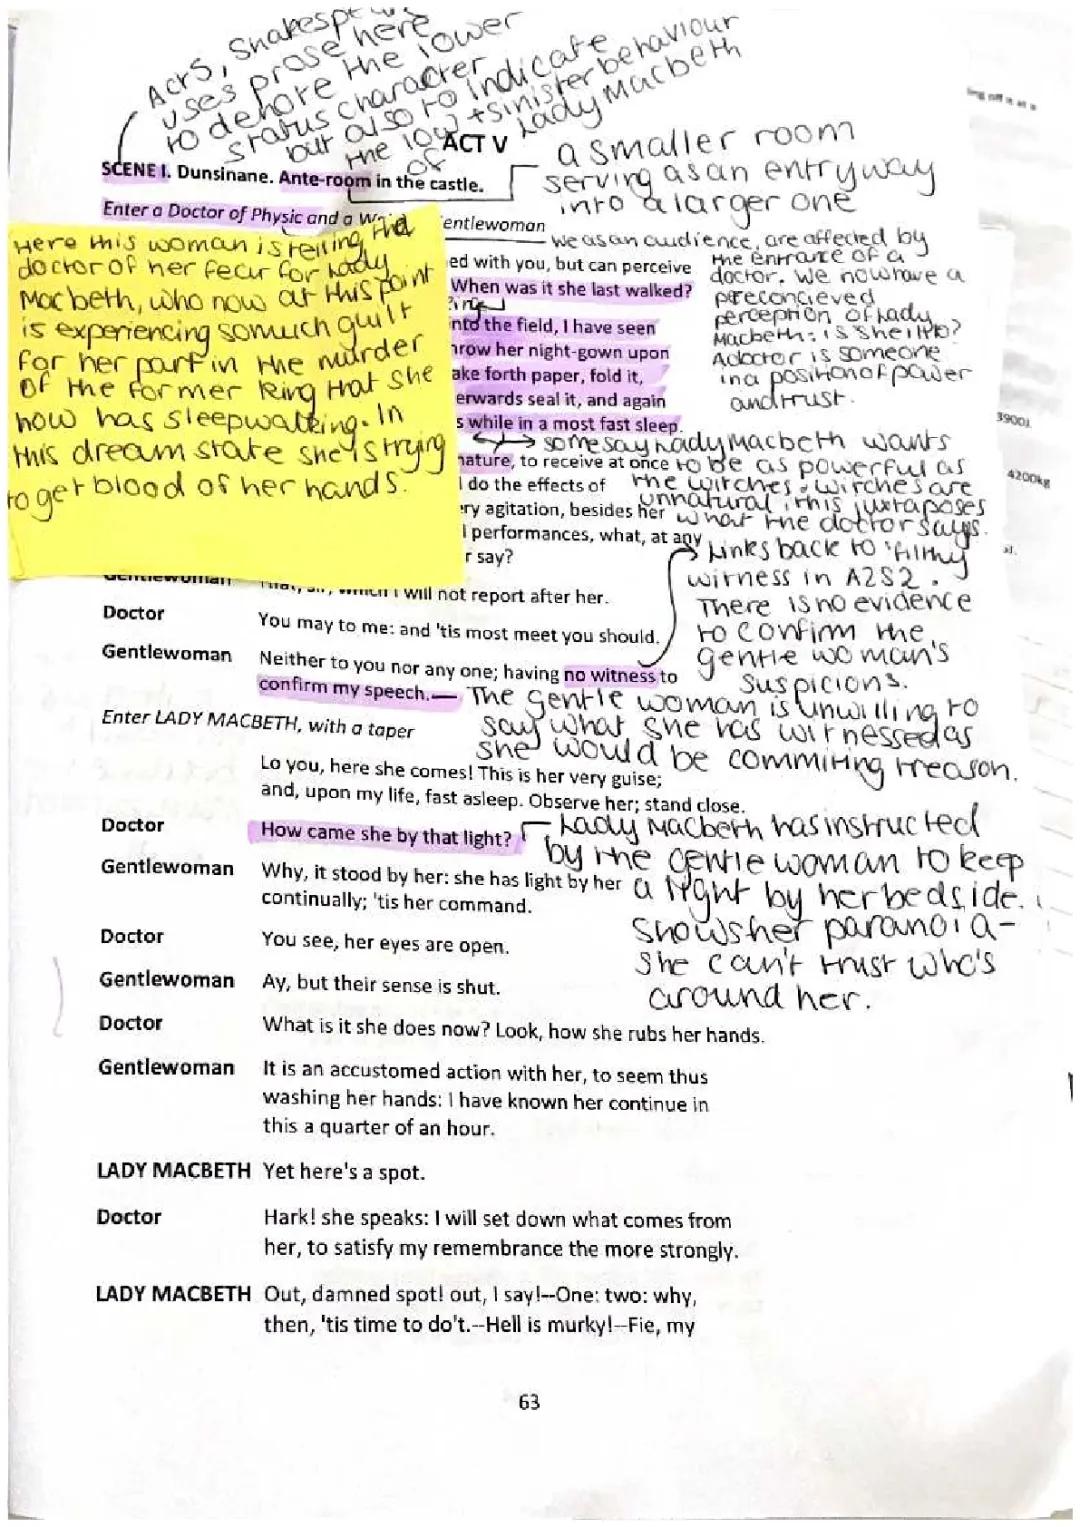 Act 5, Shakespeare
uses prose here
to denote the lower
status character
but also to indicate
the low + sinister behaviour
of Lady Macbeth
ACT V
SCENE I. Dunsinane. Ante-room in the castle.
a smaller room
serving as an entryway
into a larger one
Enter a Doctor of Physic and a W entlewoman
Here this woman is telling the
doctor of her fear for Lady
Macbeth, who now at this point
is experiencing so much guilt
for her part in the murder
of the former king that she
now has sleepwalking. In
this dream state she is trying
to get blood of her hands.
we as an audience, are affected by
the entrance of a
doctor. We now have a
preconcieved
perception of Lady
Macbeth: is she ill?
A doctor is someone
in a position of power
and trust.
ed with you, but can perceive
When was it she last walked?
nto the field, I have seen
hrow her night-gown upon
ake forth paper, fold it,
erwards seal it, and again
s while in a most fast sleep.
some say Lady Macbeth wants
to be as powerful as
the witches. Witches are
unnatural, this juxtaposes
what the doctor says.
nature, to receive at once
l do the effects of
ry agitation, besides her
l performances, what, at any
r say?
Links back to 'filthy
witness in A2S2.
There is no evidence
to confirm the
gentle woman's
suspicions.
Gentlewoman That, sir, which I will not report after her.
Doctor You may to me: and 'tis most meet you should.
Gentlewoman Neither to you nor any one; having no witness to
confirm my speech.
The gentle woman is unwilling to
say what she has witnessed as
she would be commiting treason.
Enter LADY MACBETH, with a taper
Lo you, here she comes! This is her very guise;
and, upon my life, fast asleep. Observe her; stand close.
Doctor How came she by that light?
Lady Macbeth has instructed
by the gentle woman to keep
a light by her bedside.
Shows her paranoia -
she can't trust who's
around her.
Gentlewoman Why, it stood by her: she has light by her
continually; 'tis her command.
Doctor You see, her eyes are open.
Gentlewoman Ay, but their sense is shut.
Doctor What is it she does now? Look, how she rubs her hands.
Gentlewoman It is an accustomed action with her, to seem thus
washing her hands: I have known her continue in
this a quarter of an hour.
LADY MACBETH Yet here's a spot.
Doctor Hark! she speaks: I will set down what comes from
her, to satisfy my remembrance the more strongly.
LADY MACBETH Out, damned spot! out, I say!--One: two: why,
then, 'tis time to do't.--Hell is murky!--Fie, my
63
3900J
4200kg